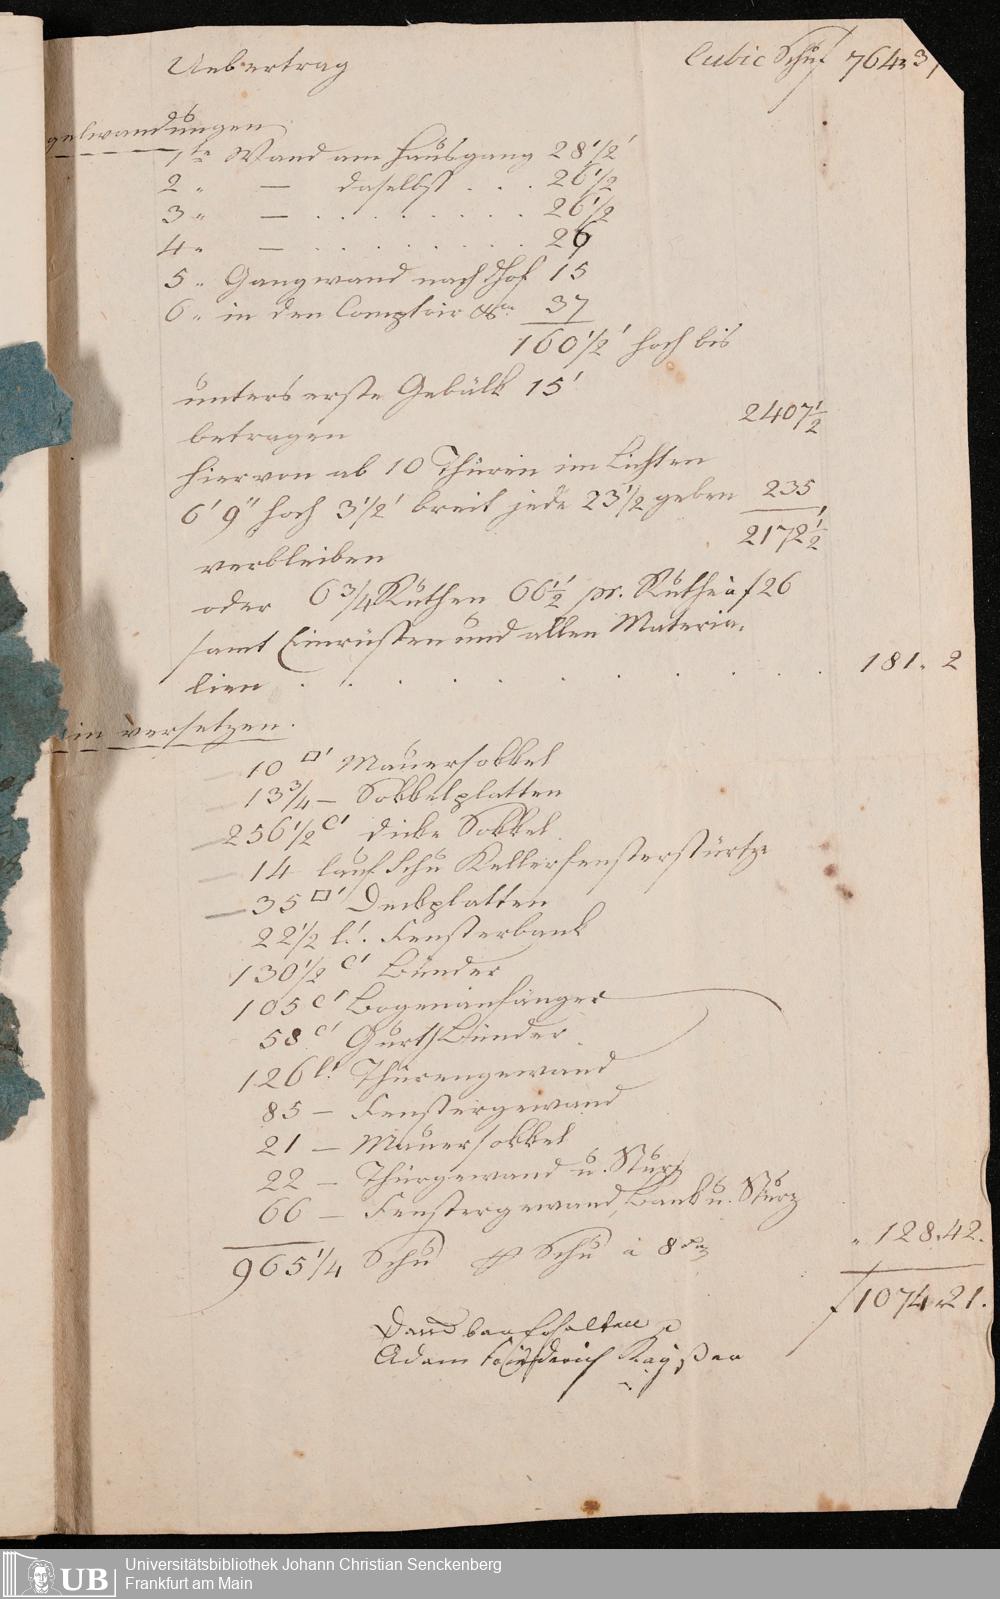 Uebertrag Cubic Schuh 764 37
gelwandungen
1te Wand am Hausgang 28 1/2'
2 " — daselbst . . . 26 1/2
3 " — . . . . . . . . 26 1/2
4 " — . . . . . . . . 27
5 " Gangwand nach Hof 15
6 " in den Comptoir 37
160 1/2' hoch bis
unters erste Gebälk 15'
betragen 2407 1/2
hiervon ab 10 Thüren im Lichten
6' 9" hoch 3 1/2' breit jede 23 1/2 geben 235
verbleiben 2172 1/2
oder 6 3/4 Ruthen 66 1/2 pr. Ruthe à f 26
samt Einrüsten und allen Materia-
lien . . . . . . . . . . . 181. 2
in versetzen.
10 □' Mauersokkel
13 3/4 — Sokkelplatten
256 1/2 c' dicke Sokkel
14 lauf Schu Kellerfensterstürtze
35 □' Deckplatten
22 1/2 l.'. Fensterbank
130 1/2 c' Binder
105 c' Bogenanfänger
58 c' Gurt Binder
126 l.' Thürengewand
85 — Fenstergewand
21 — Mauersokkel
22 — Thürgewand u. Sturz
66 — Fenstergewand, Bank u. Sturz
965 1/4 Schu pr Schu à 8 " 128.42.
f 1074.21.
Adam Friederich Kayßer